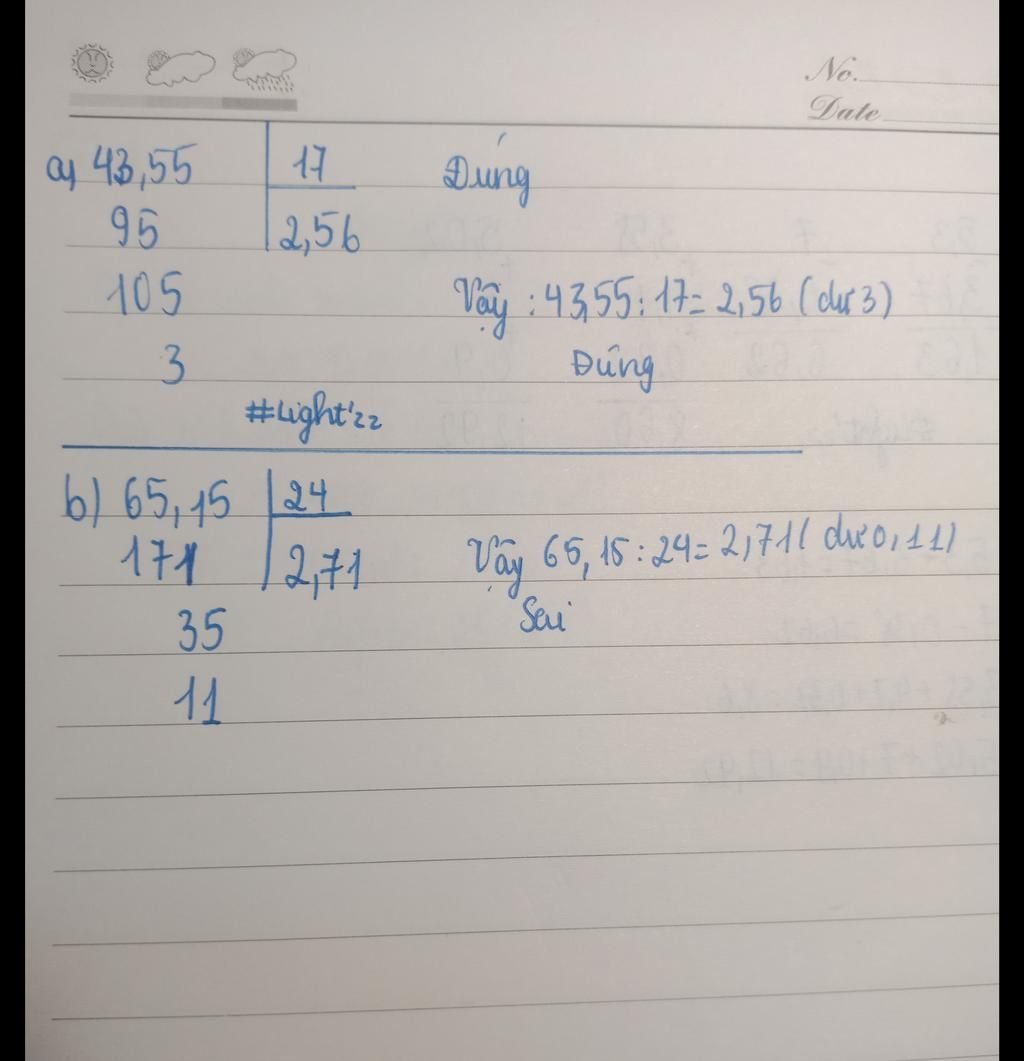 No.
Date
a) 43,55 | 17 Đúng
95 | 2,56
105 Vậy : 43,55 : 17 = 2,56 ( dư 3 )
3 Đúng
#Light'zz
b) 65,15 | 24
171 | 2,71 Vậy 65,15 : 24 = 2,71 ( dư 0,11 )
35 Sai
11